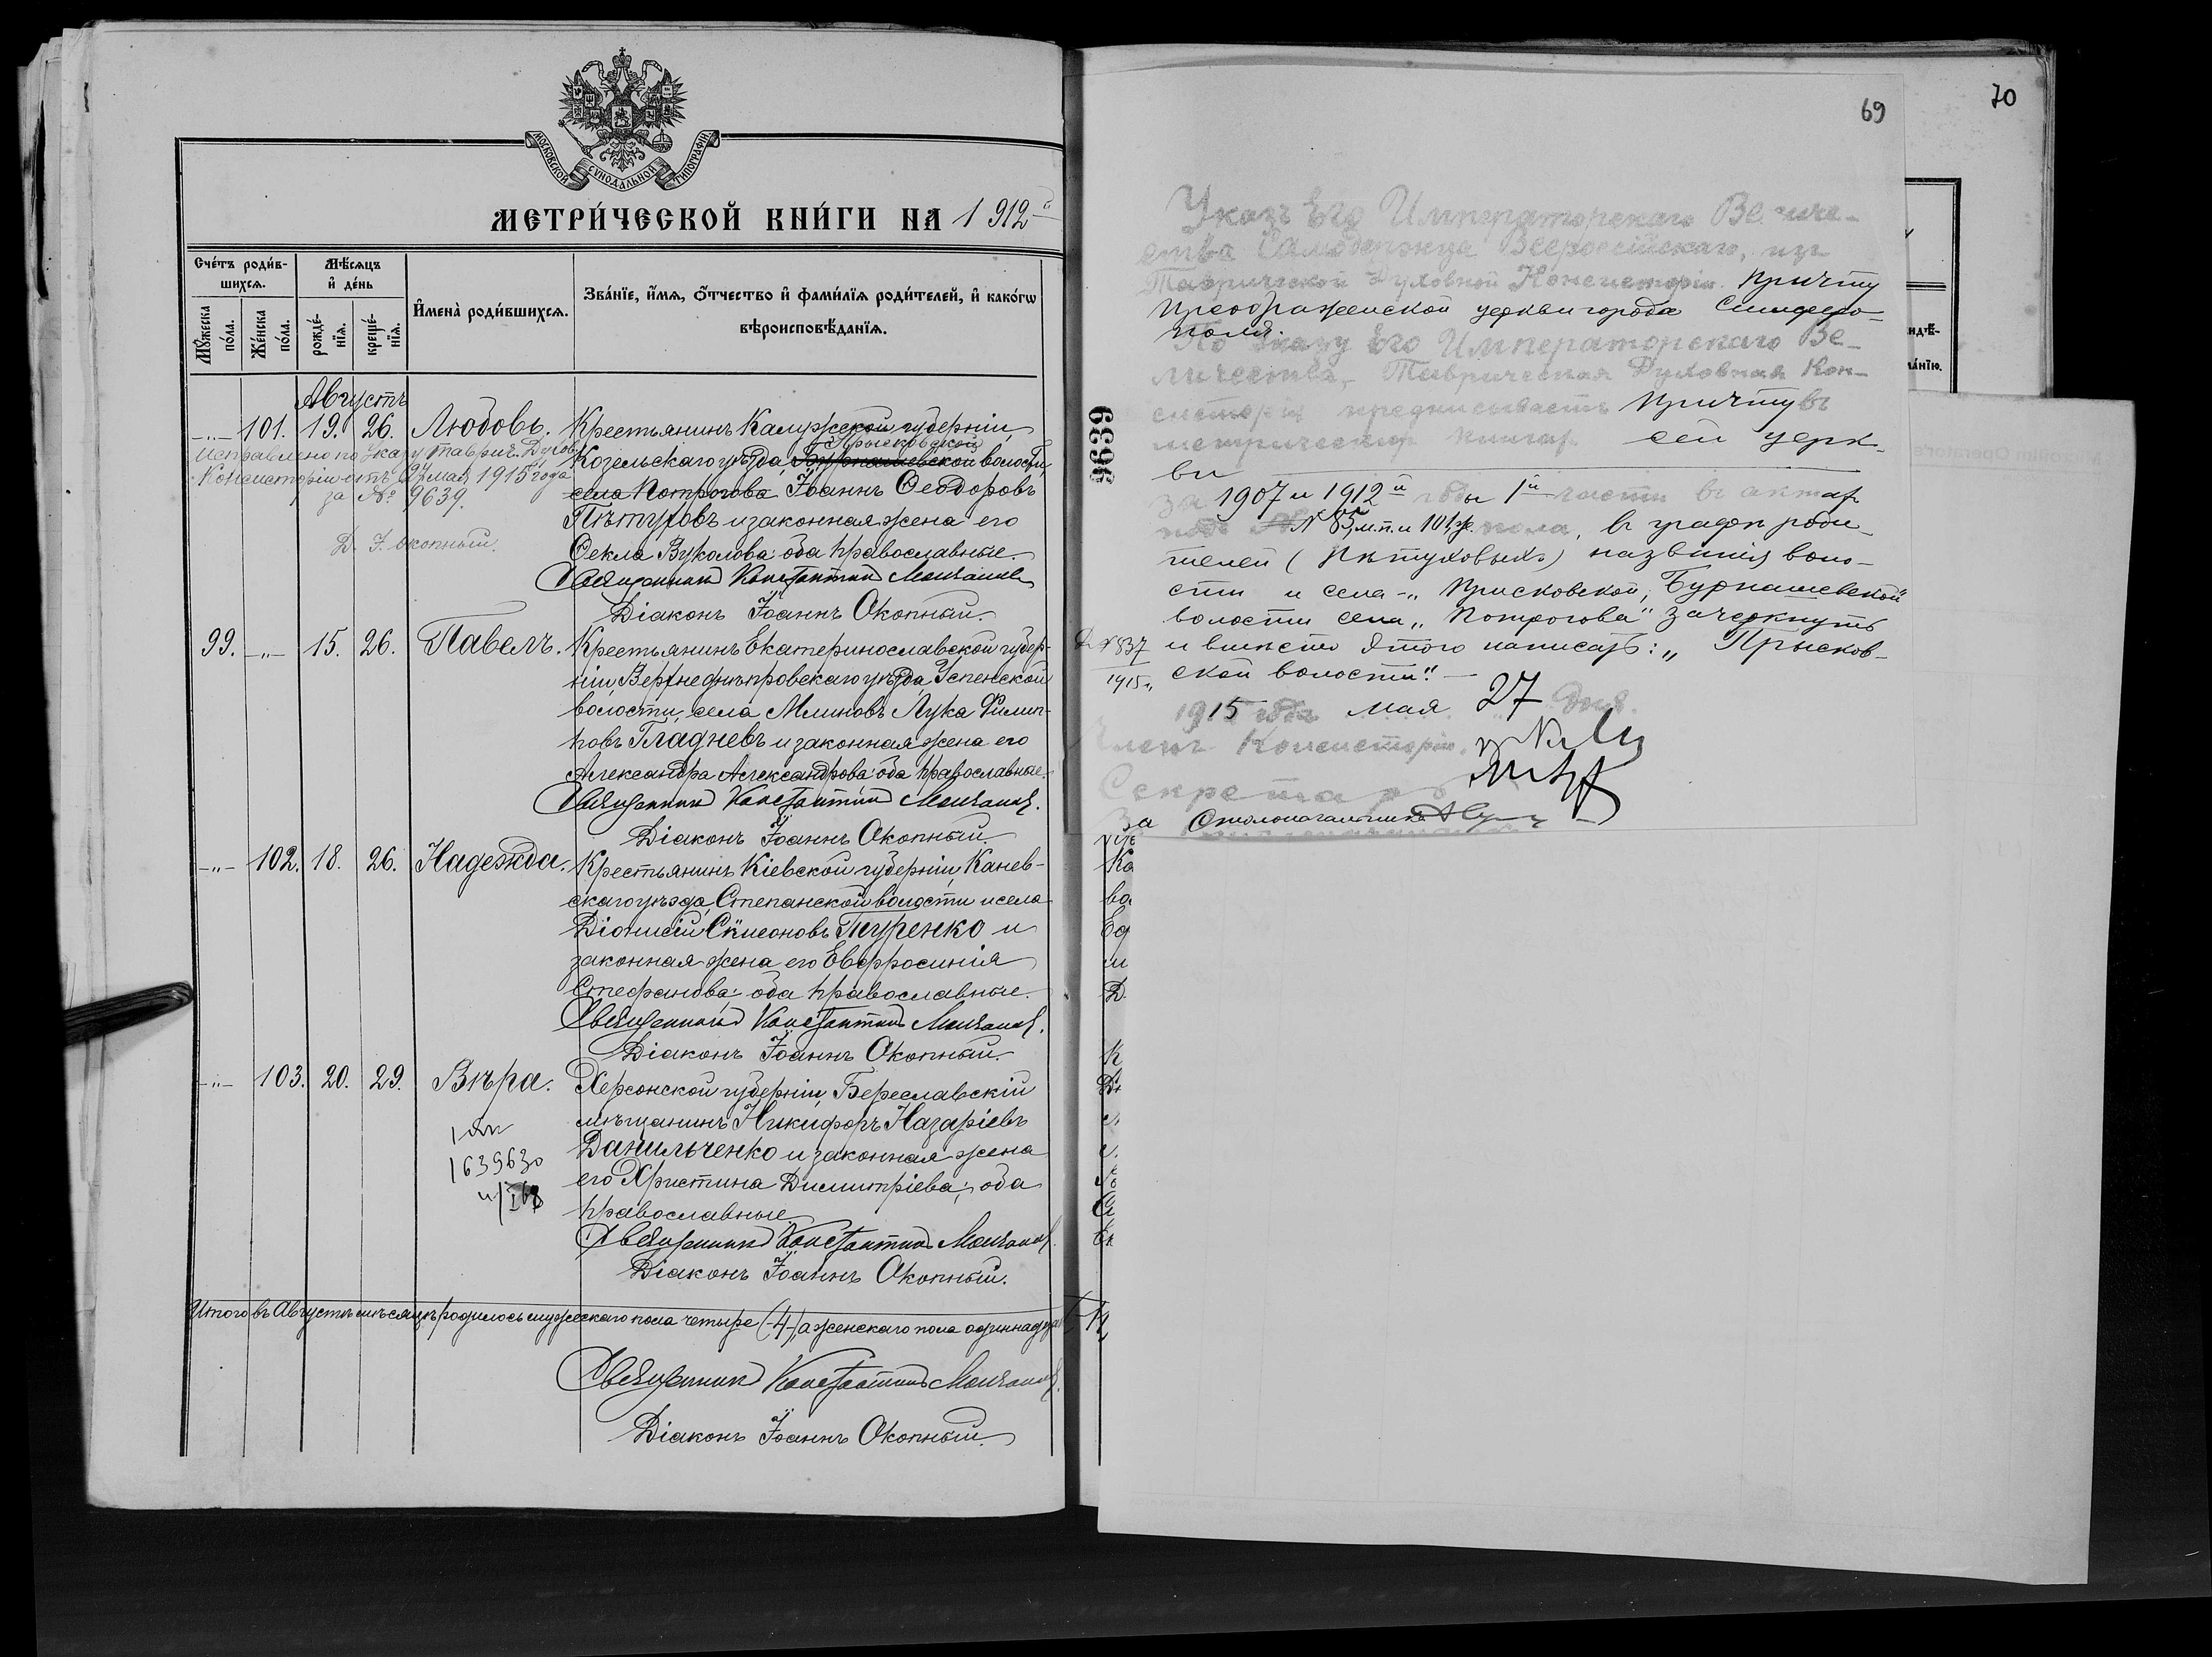 МОСКОВСКОЙ СѴНОДАЛЬНОЙ ТИПОГРАФІИ
МЕТРИ́ЧЕСКОЙ КНИ́ГИ НА 1912-й
Сче́тъ роди́в-
шихсѧ.
Мꙋ́жеска
по́ла.
Же́нска
по́ла.
Мѣ́сѧцъ
и҆ де́нь
рожде́-
нїѧ.
креще́-
нїѧ.
И҆мена̀ роди́вшихсѧ.
Зва́нїе, и҆́мѧ, ѻ҆́тчество и҆ фами́лїѧ роди́телей, и҆ како́гѡ
вѣроисповѣ́данїѧ.
Августъ
-„- 101. 19. 26. Любовь. Крестьянинъ Калужской губерніи,
Прысковской
Козельскаго уѣзда, Бурнашевской волости,
села Потрогова Іоаннъ Ѳеодоровъ
Пѣтуховъ и законная жена его
Ѳекла Вуколова: оба православные.
Исправлено по Указу Таврич. Духов.
Консисторіи отъ 27 мая 1915 года
за № 9639.
Д. І. Окопный.
Священникъ Константинъ
Діаконъ Іоаннъ Окопный.
99. -„- 15. 26. Павелъ. Крестьянинъ Екатеринославской губер-
ніи, Верхнеднѣпровскаго уѣзда, Успенской
волости, села Млиновъ Лука Филип-
повъ Гладневъ и законная жена его
Александра Александрова: оба православные.
Священникъ Константинъ
Діаконъ Іоаннъ Окопный.
-„- 102. 18. 26. Надежда. Крестьянинъ Кіевской губерніи, Канев-
скаго уѣзда, Степанской волости и села
Діонисій Сѵмеоновъ Пуренко и
законная жена его Евфросинія
Стефанова: оба православные.
Священникъ Константинъ
Діаконъ Іоаннъ Окопный.
-„- 103. 20. 29. Вѣра. Херсонской губерніи, Береславскій
мѣщанинъ Никифоръ Назаріевъ
Данильченко и законная жена
его Христина Димитріева; оба
православные
1639630
Священникъ Константинъ
Діаконъ Іоаннъ Окопный.
Итого въ Августѣ мѣсяцѣ родилось мужескаго пола четыре (-4-) а женскаго пола одиннадцать
Священникъ Константинъ
Діаконъ Іоаннъ Окопный.
69
70
Указъ Его Императорскаго Величе-
ства Самодержца Всероссійскаго, изъ
Таврической Духовной Консисторіи. Причту
Преображенской церкви города Симферо-
поля.
По Указу Его Императорскаго Ве-
личества, Таврическая Духовная Кон-
систорія предписываетъ Причту въ
метрическихъ книгахъ сей церк-
ви
за 1907 и 1912й годы 1й части въ актахъ
подъ № 85 м.п. и 101 ж. пола, въ графѣ роди-
телей (Пѣтуховыхъ) названія воло-
сти и села - „Прысковской, Бурнашевской
волости села „Потрогова" зачеркнуть
и вмѣсто этого написать: „Прысков-
ской волости". -
Д. № 837
1915 г.
1915 года мая 27 дня.
Членъ Консисторіи,
Секретарь
За Столоначальника
9639